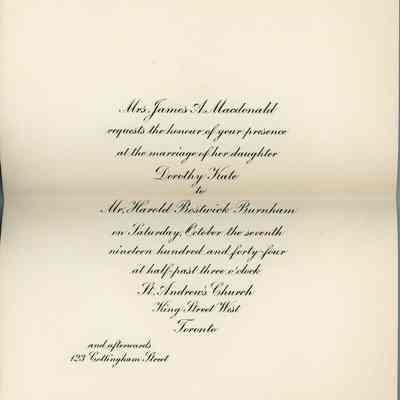 Mrs. James A. Macdonald
requests the honour of your presence
at the marriage of her daughter
Dorothy Kate
to
Mr. Harold Bostwick Burnham
on Saturday, October the seventh
nineteen hundred and forty-four
at half-past three o'clock
St. Andrew's Church
King Street West
Toronto
and afterwards
123 Cottingham Street